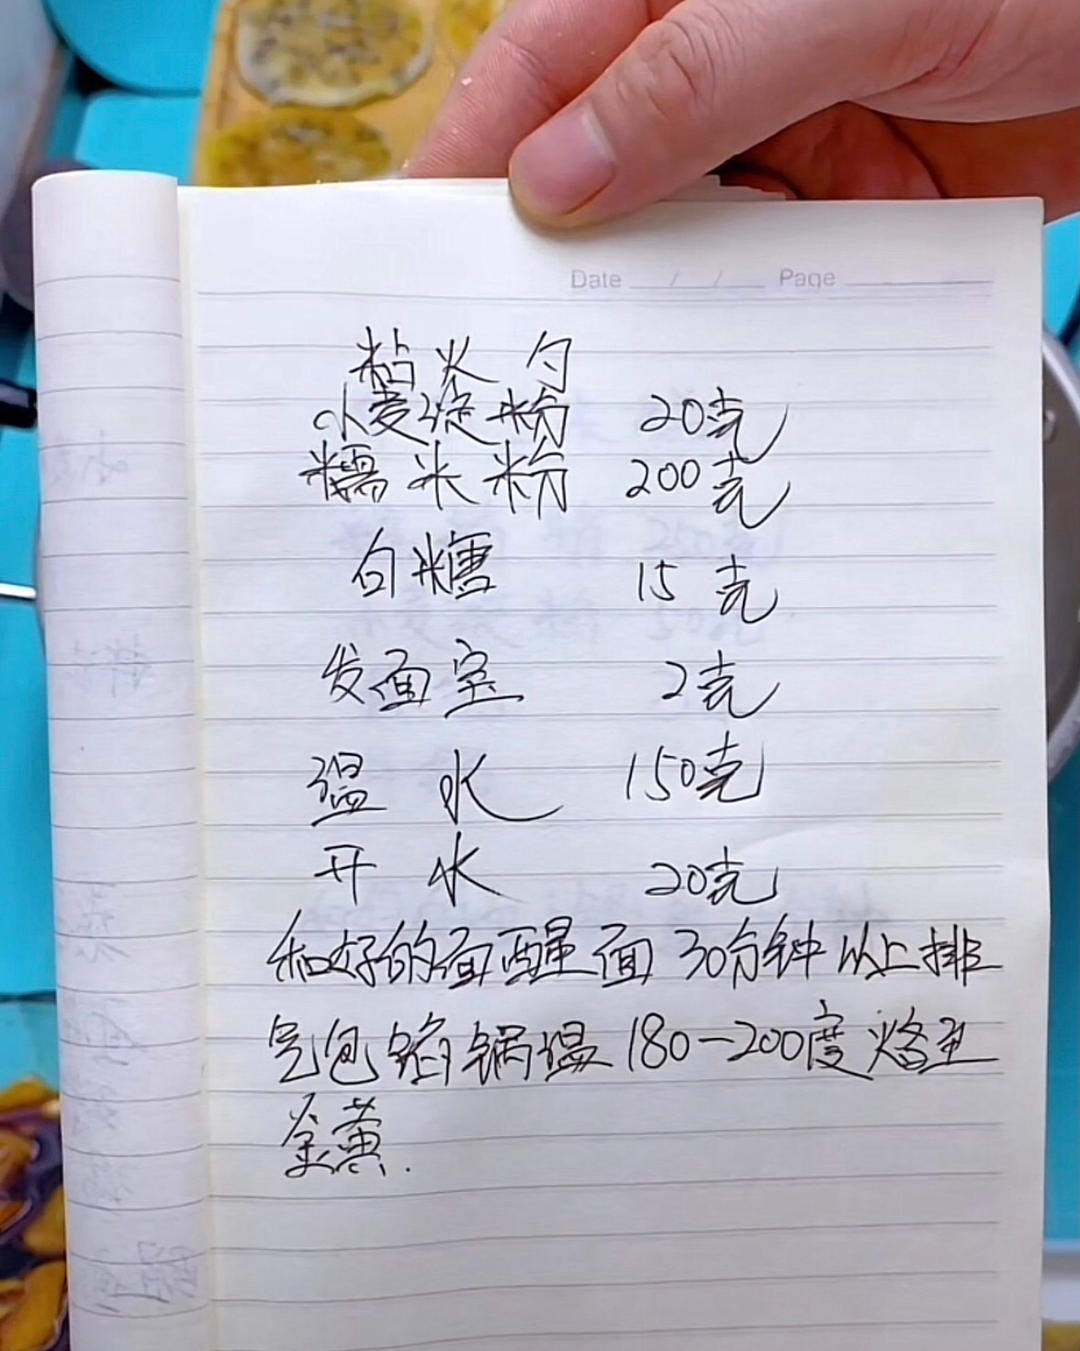 Date / / Page
粘火勺
小麦淀粉 20克
糯米粉 200克
白糖 15克
发面宝 2克
温水 150克
开水 20克
和好的面醒面30分钟以上排
气包馅锅温180-200度烙至
金黄.